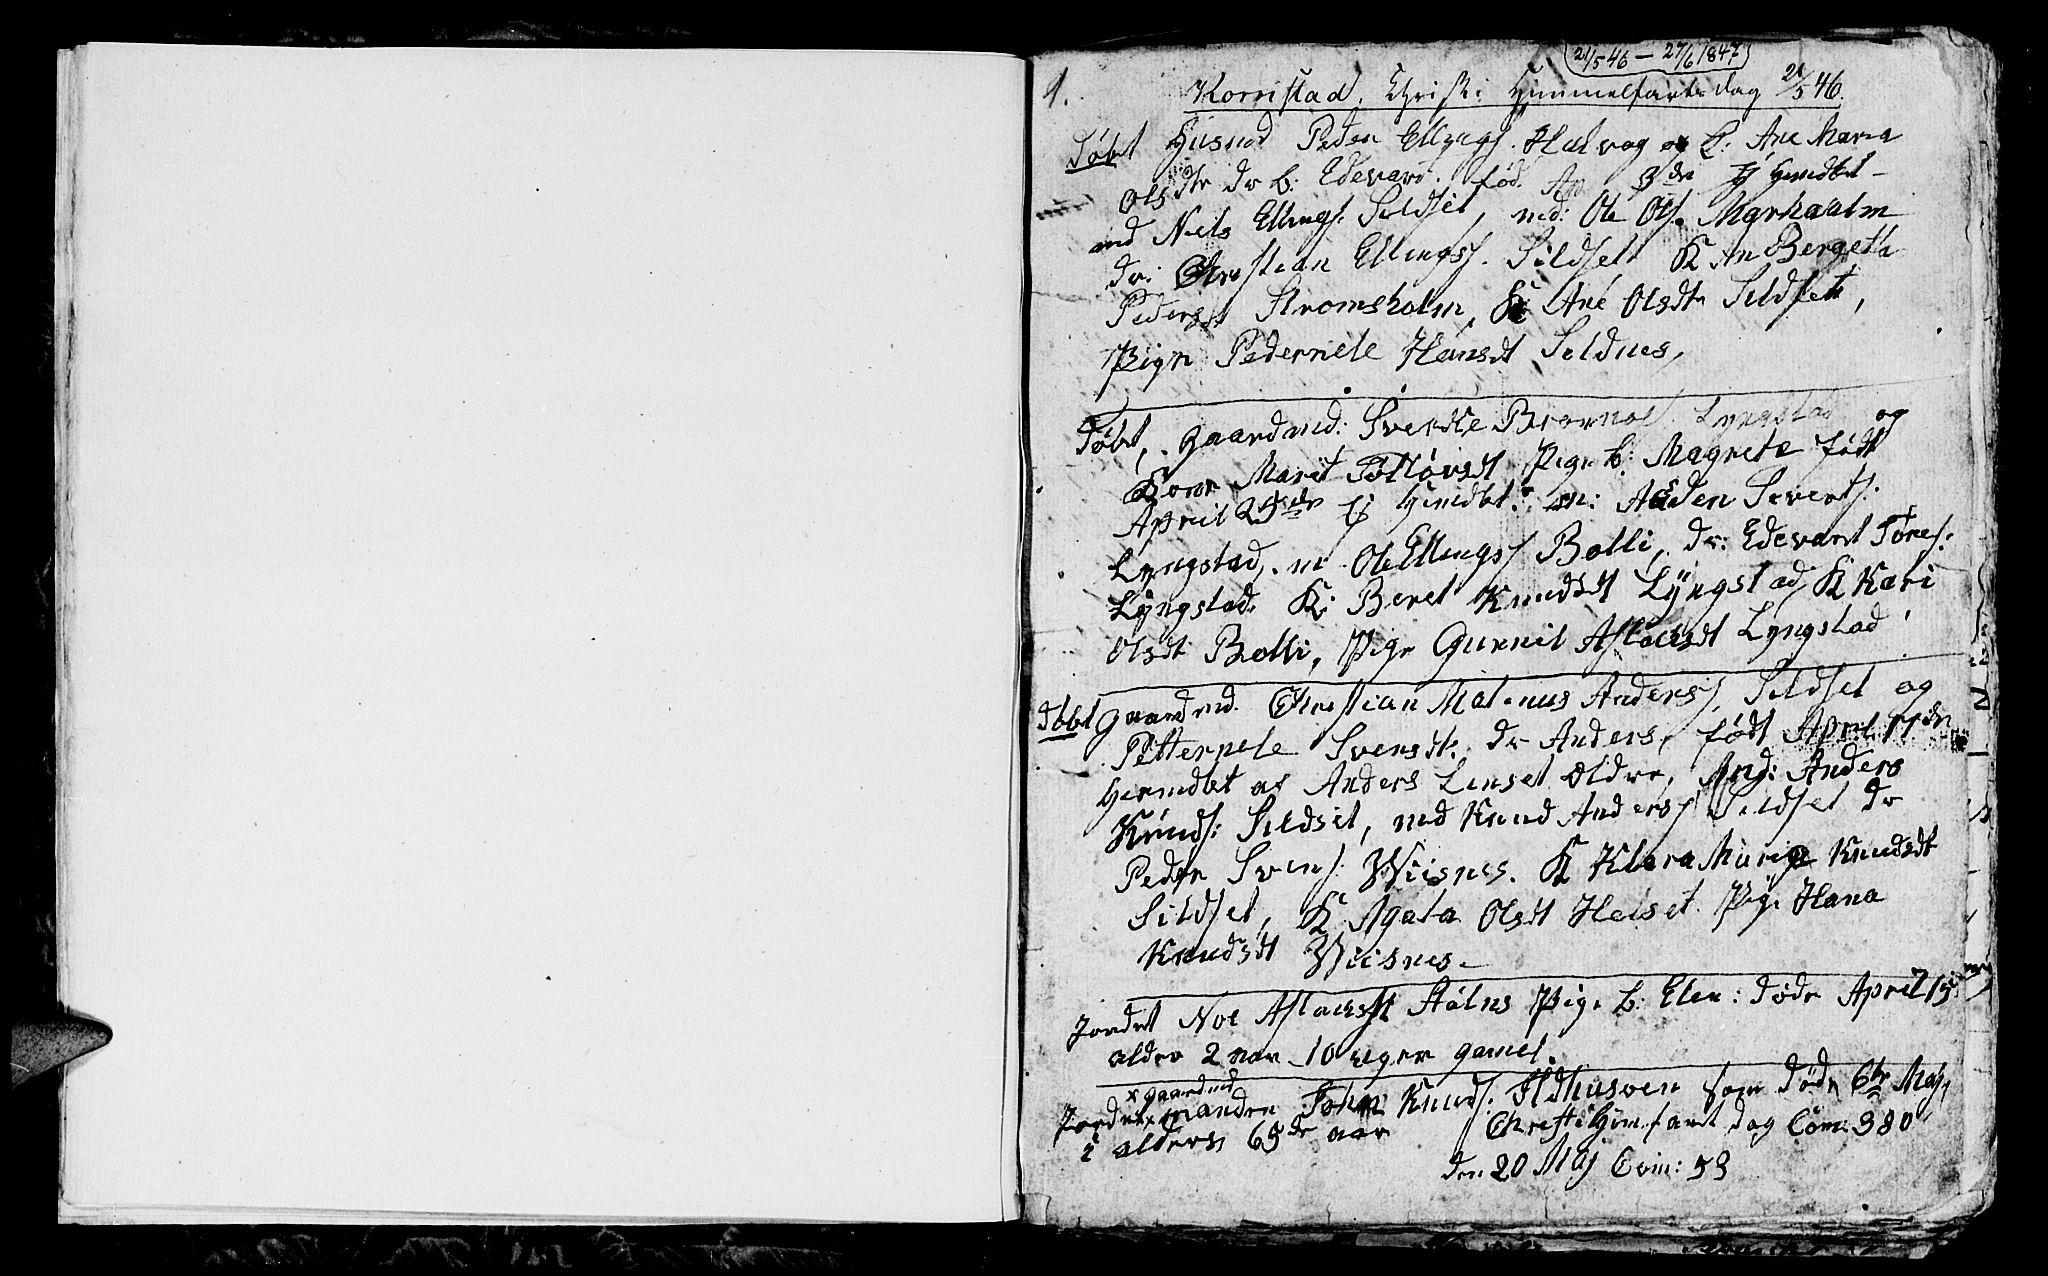 21/5 46 – 27/6 1847
1.
Kornstad. Christi Himmelfarts dag 21/5 46.
Døbt Husmd Peder Ellings. Hals vog og K: Ane Maria
Olsdtr dr b: Edevard. fød. 3de Hjmdbt
md Niels Ellings. Sildset, md: Ole Ols. Marhaalm
dr: Christian Ellingss. Sildset K An Bergetha
Pedersdt Stromsholm, K Ane Olsdtr Sildset,
Pign Pedernele Hansdt Sildnes,
Døbt, gaardmd: Sverke Lyngstad og
Kone Marit Tolløvsdt Pige b: Magrete født
April 25de Hjmdbt: m: Arden Siverts.
Lyngstad, m Ole Ellings Bolli, dr: Edevard Tores:
Lÿngstad. K: Beret Knudsdt Lÿngstad K Kari
Olsdt Bolli, Pige Gunnil Aslachsdt Lyngstad
Døbt gaardmd. Christian Matinus Anderss. Sildset og
Petternele Svensdt. dr Anders, født April 11de
Hjemdbt af Anders Linset Ældre, Md: Anders
Knuds: Sildset, md Knud Anderss Sildset dr
Peder Svens. Wiisnes. K Klara Marie Knudsdt
Sildset, K Agata Olsdt Helset. Pige Hana
Knudsdt Wiisnes.
Jordet Noe Aslachs Pige b: Elen: døde April 15
alder 2 aar 10 uger gamel.
x gaardmd
Jordet x manden John Knuds. Ildhusøen som døde 6te Maj,
i alderen 65de aar Christi Himfart dag Com: 380
den 20 Maj Com: 53